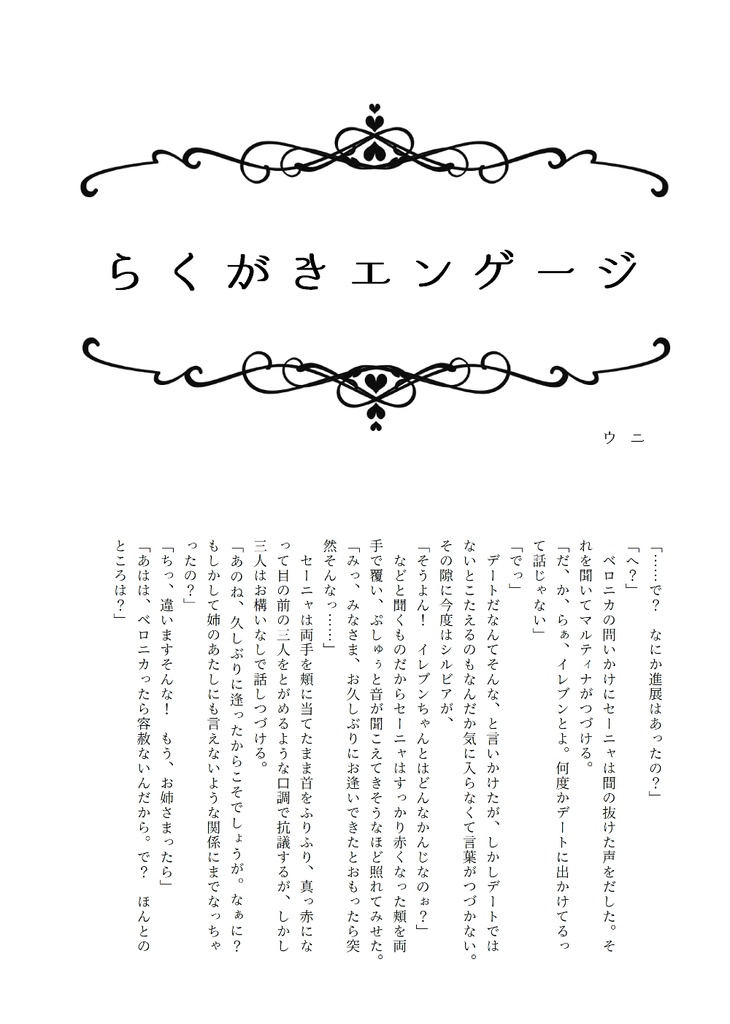 らくがきエンゲージ
ウニ
「……で？　なにか進展はあったの？」
「へ？」
　ベロニカの問いかけにセーニャは間の抜けた声をだした。そ
れを聞いてマルティナがつづける。
「だ、か、らぁ、イレブンとよ。何度かデートに出かけてるっ
て話じゃない」
「でっ」
　デートだなんてそんな、と言いかけたが、しかしデートでは
ないとこたえるのもなんだか気に入らなくて言葉がつづかない。
その隙に今度はシルビアが、
「そうよん！　イレブンちゃんとはどんなかんじなのぉ？」
　などと聞くものだからセーニャはすっかり赤くなった頬を両
手で覆い、ぷしゅぅと音が聞こえてきそうなほど照れてみせた。
「みっ、みなさま、お久しぶりにお逢いできたとおもったら突
然そんなっ……」
　セーニャは両手を頬に当てたまま首をふりふり、真っ赤にな
って目の前の三人をとがめるような口調で抗議するが、しかし
三人はお構いなしで話しつづける。
「あのね、久しぶりに逢ったからこそでしょうが。なぁに？
もしかして姉のあたしにも言えないような関係にまでなっちゃ
ったの？」
「ちっ、違いますそんな！　もう、お姉さまったら」
「あはは、ベロニカったら容赦ないんだから。で？　ほんとの
ところは？」